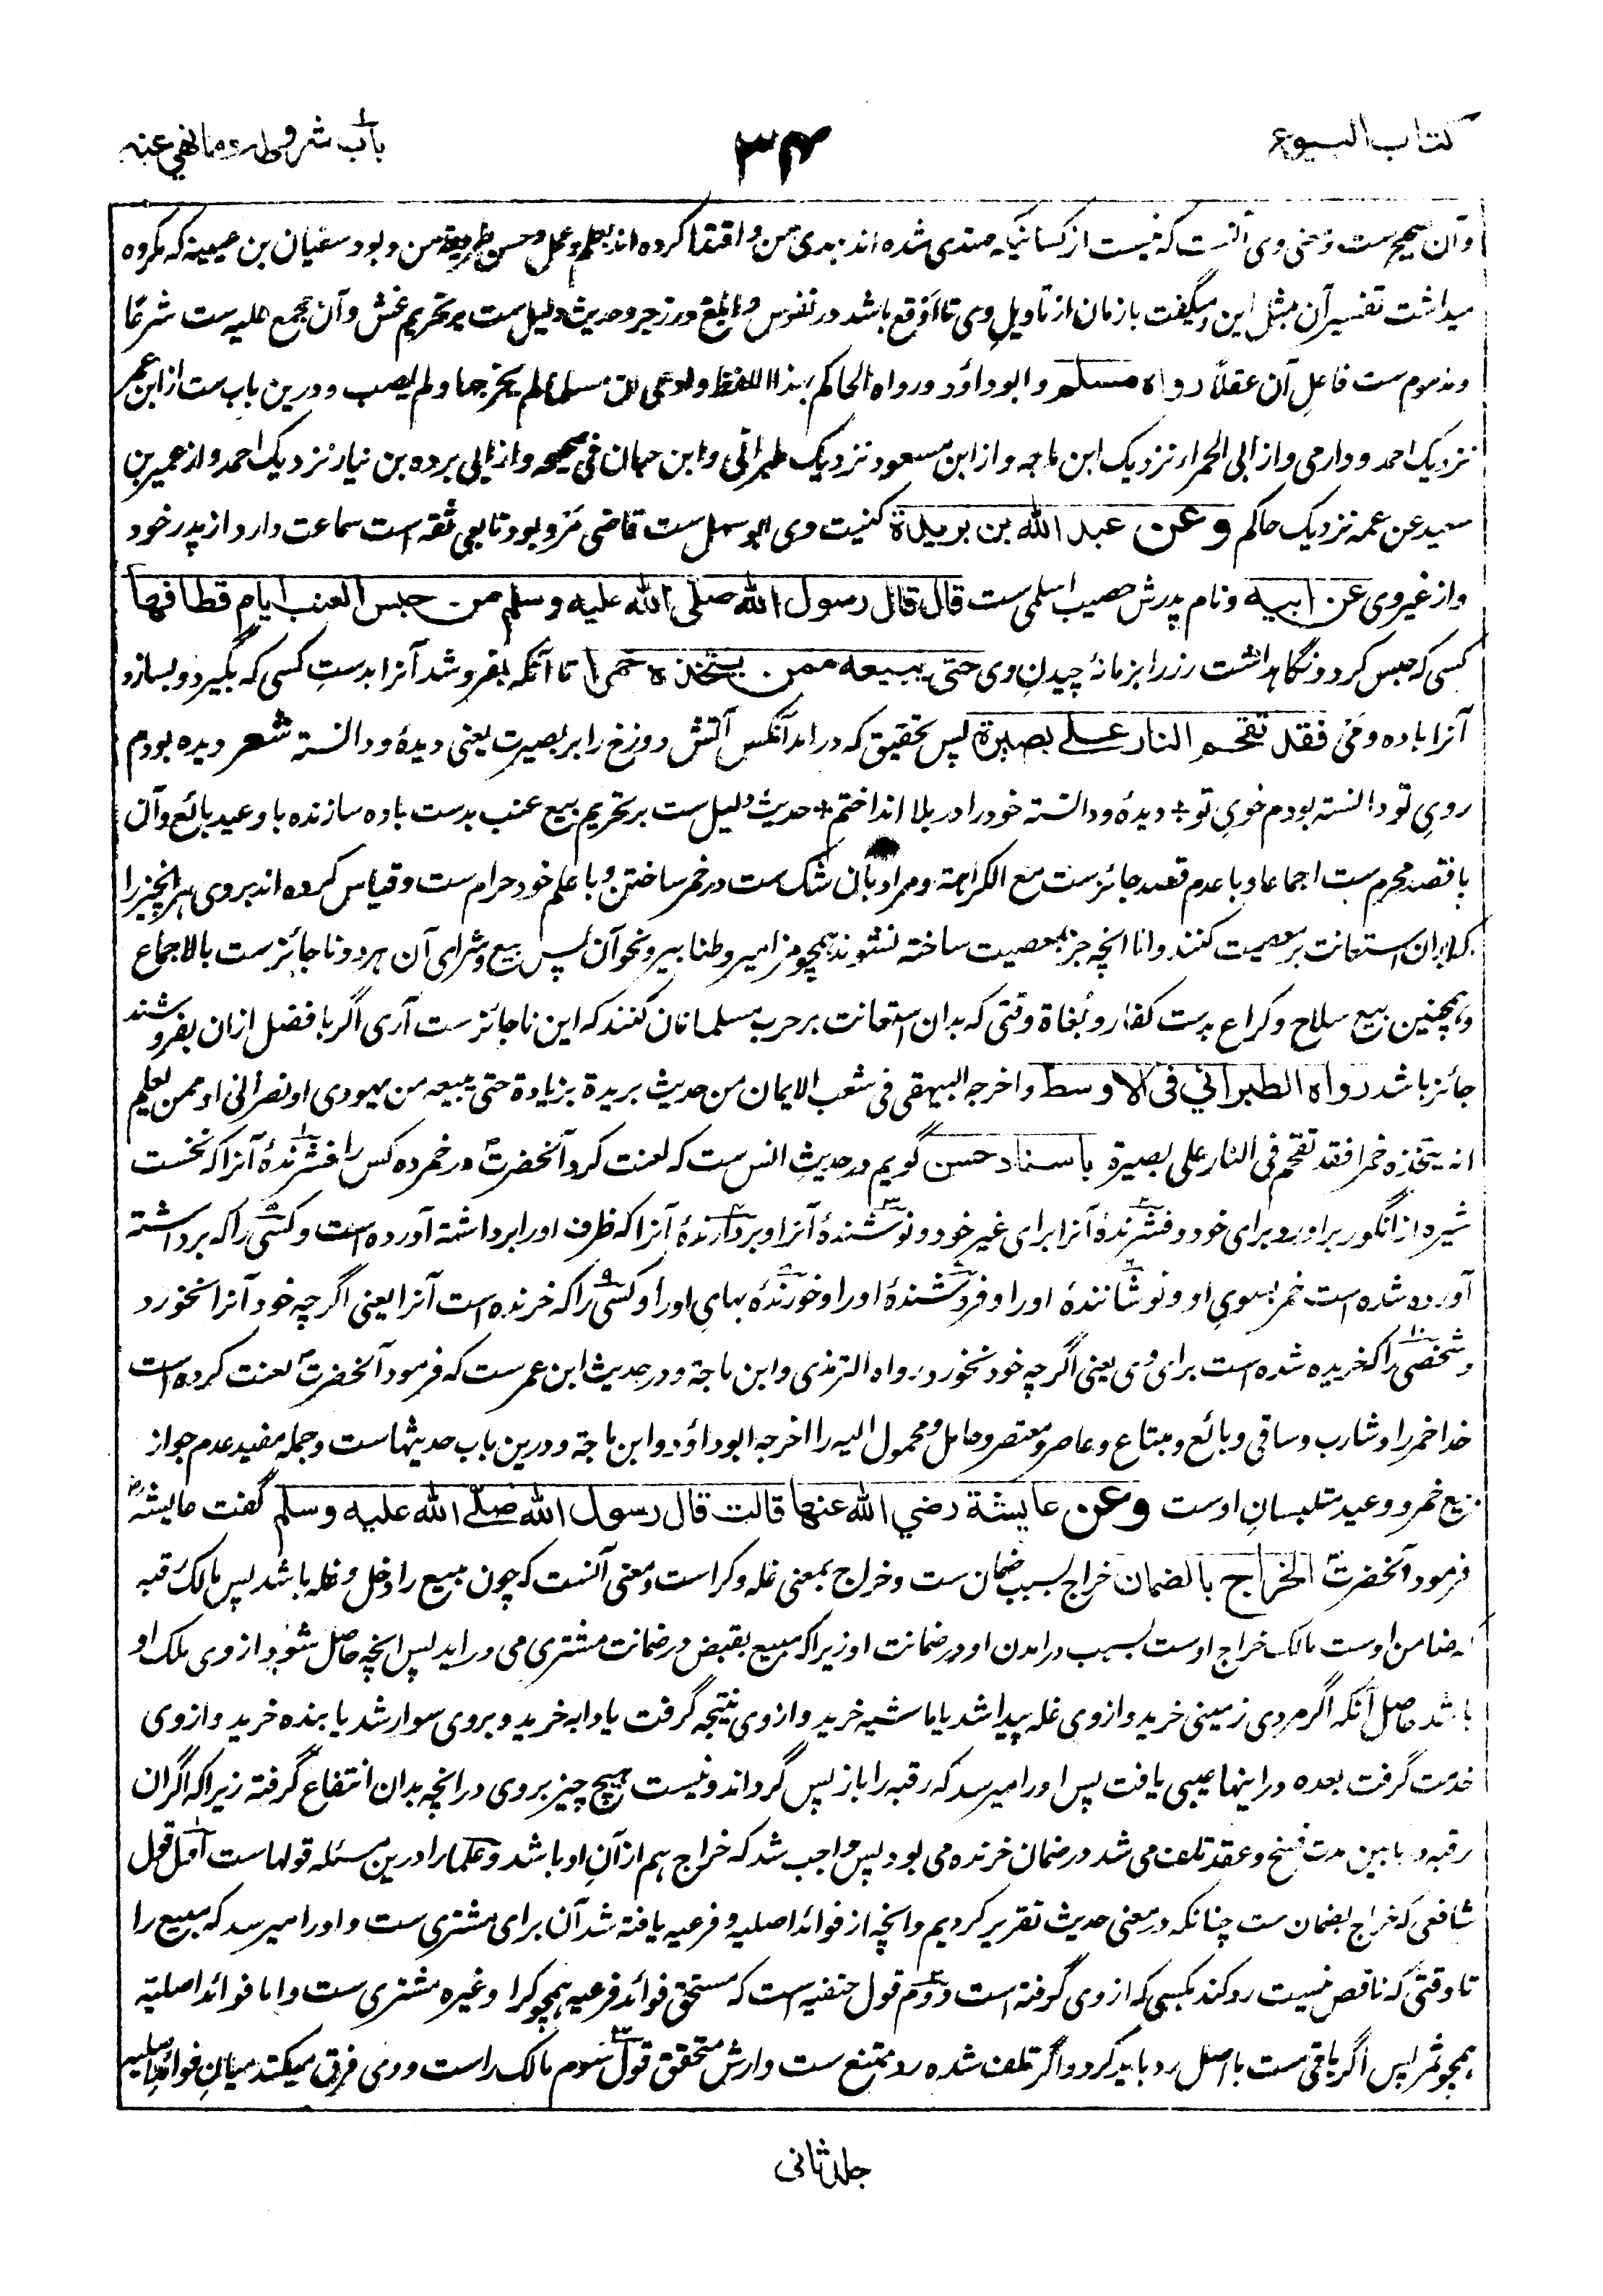 کتاب البیوع
باب شروطه وما نهي عنه
وآن صحیح ست ومعنی وی آنست که نیست از کسانیکه مهتدی شده اند بهدی من و اقتدا کرده اند بعلم و عمل و حسن طریقهٔ من و بود سفیان بن عیینه که مکروه
میداشت تفسیر آن بمثل این و میگفت باز مان از تاویل وی تا اوقع باشد در نفوس و ابلغ در زجر و حدیث دلیل ست بر تحریم غش و آن مجمع علیه ست شرعًا
و مذموم ست فاعل آن عقلًا رواه مسلم و ابوداؤد ورواه الحاکم بهذا اللفظ وادعی ان مسلما لم یخرجها ولم یصب و درین باب ست از ابن عمر
نزدیک احمد و دارمی و از ابی الحمراء نزدیک ابن ماجه و از ابن مسعود نزدیک طبرانی و ابن حبان فی صحیحه و از ابی برده بن نیار نزدیک احمد و از عمیر بن
سعید عن عمه نزدیک حاکم وعن عبد الله بن بریدة کنیت وی ابو سهل ست قاضی مرو بود تابعی ثقه است سماعت دارد از پدر خود
و از غیر وی عن ابیه و نام پدرش حصیب اسلمی ست قال قال رسول الله صلی الله علیه وسلم من حبس العنب ایام قطافها
کسی که حبس کرد و نگاهداشت رز را بزمانهٔ چیدن وی حتی یبیعه ممن یتخذه خمرا تا آنکه بفروشد آنرا بدست کسی که بگیرد و بسازد
آنرا باده و می فقد تقحم النار علی بصیرة پس تحقیق که درامد آنکس آتش دوزخ را بر بصیرت یعنی دیدهٔ و دانسته شعر دیده بودم
روی تو دانسته بودم خوی تو + دیدهٔ و دانسته خود را در بلا انداختم + حدیث دلیل ست بر تحریم بیع عنب بدست باده سازنده با وعید بائع و آن
با قصد محرم ست اجماعا و با عدم قصد جائز ست مع الکراهة و مراد بآن شک ست در خمر ساختن و با علم خود حرام ست و قیاس کرده اند بر وی هر انچیز را
که بدان استعانت بر معصیت کنند و اما انچه جز بمعصیت ساخته نشوند همچو مزامیر و طنابیر و نحو آن پس بیع و شرای آن هر دو ناجائز ست بالاجماع
و همچنین بیع سلاح و کراع بدست کفار و بُغاة وقتی که بدان استعانت بر حرب مسلمانان کنند که این ناجائز ست آری اگر با فضل ازان بفروشند
جائز باشد رواه الطبراني في الاوسط واخرجه البیهقی فی شعب الایمان من حدیث بریدة بزیادة حتی یبیعه من یهودی او نصرانی او ممن یعلم
انه یتخذه خمرا فقد تقحم فی النار علی بصیرة باسناد حسن گویم در حدیث انس ست که لعنت کرد آنحضرتؐ در خمر ده کس را فشرندهٔ آنرا که نخست
شیره از انگور براورد برای خود و فشرندهٔ آنرا برای غیر خود و نوشندهٔ آنرا و بردارندهٔ آنرا که ظرف او را برداشته آورده است و کسی را که برداشته
آورده شده است خمر بسوی او و نوشانندهٔ او را و فروشندهٔ او را و خورندهٔ بهای او را و کسی را که خرنده است آنرا یعنی اگرچه خود آنرا نخورد
و شخصی را که خریده شده است برای وی یعنی اگرچه خود نخورد رواه الترمذی وابن ماجة و در حدیث ابن عمر ست که فرمود آنحضرتؐ لعنت کرده است
خدا خمر را و شارب و ساقی و بائع و مبتاع و عاصر و معتصر و حامل و محمول الیه را اخرجه ابوداؤد وابن ماجة و درین باب حدیثها ست و جمله مفید عدم جواز
بیع خمر و وعید متلبسان اوست وعن عایشة رضي الله عنها قالت قال رسول الله صلی الله علیه وسلم گفت عایشهؓ
فرمود آنحضرتؐ الخراج بالضمان خراج بسبب ضمان ست و خراج بمعنی غله و کرا ست و معنی آنست که چون مبیع را دخل و غله باشد پس مالک رقبه
که ضامن اوست مالک خراج اوست بسبب درامدن او در ضمانت او زیرا که مبیع بقبض در ضمانت مشتری می دراید پس انچه حاصل شود از وی ملک او
باشد حاصل آنکه اگر مردی زمینی خرید و از وی غله پیدا شد یا ماشیه خرید و از وی نتیجه گرفت یا دابه خرید و بر وی سوار شد یا بنده خرید و از وی
خدمت گرفت بعده در اینها عیبی یافت پس او را میرسد که رقبه را باز پس گرداند و نیست هیچ چیز بر وی در انچه بدان انتفاع گرفته زیرا که اگر ان
رقبه در مابین مدت فسخ و عقد تلف می شد در ضمان خرنده می بود پس واجب شد که خراج هم از آن او باشد و علما را درین مسئله قولها ست اول قول
شافعی که خراج بضمان ست چنانکه در معنی حدیث تقریر کردیم و انچه از فوائد اصلیه و فرعیه یافته شد آن برای مشتری ست و او را میرسد که مبیع را
تا وقتی که ناقص نیست رد کند بکسی که از وی گرفته است دوم قول حنفیه است که مستحق فوائد فرعیه همچو کرا و غیره مشتری ست و اما فوائد اصلیه
همچو ثمر پس اگر باقی ست با اصل رد باید کرد و اگر تلف شده رد ممتنع ست و ارش متحقق قول سوم مالک راست و وی فرق میکند میان فوائد اصلیه
جلد ثانی